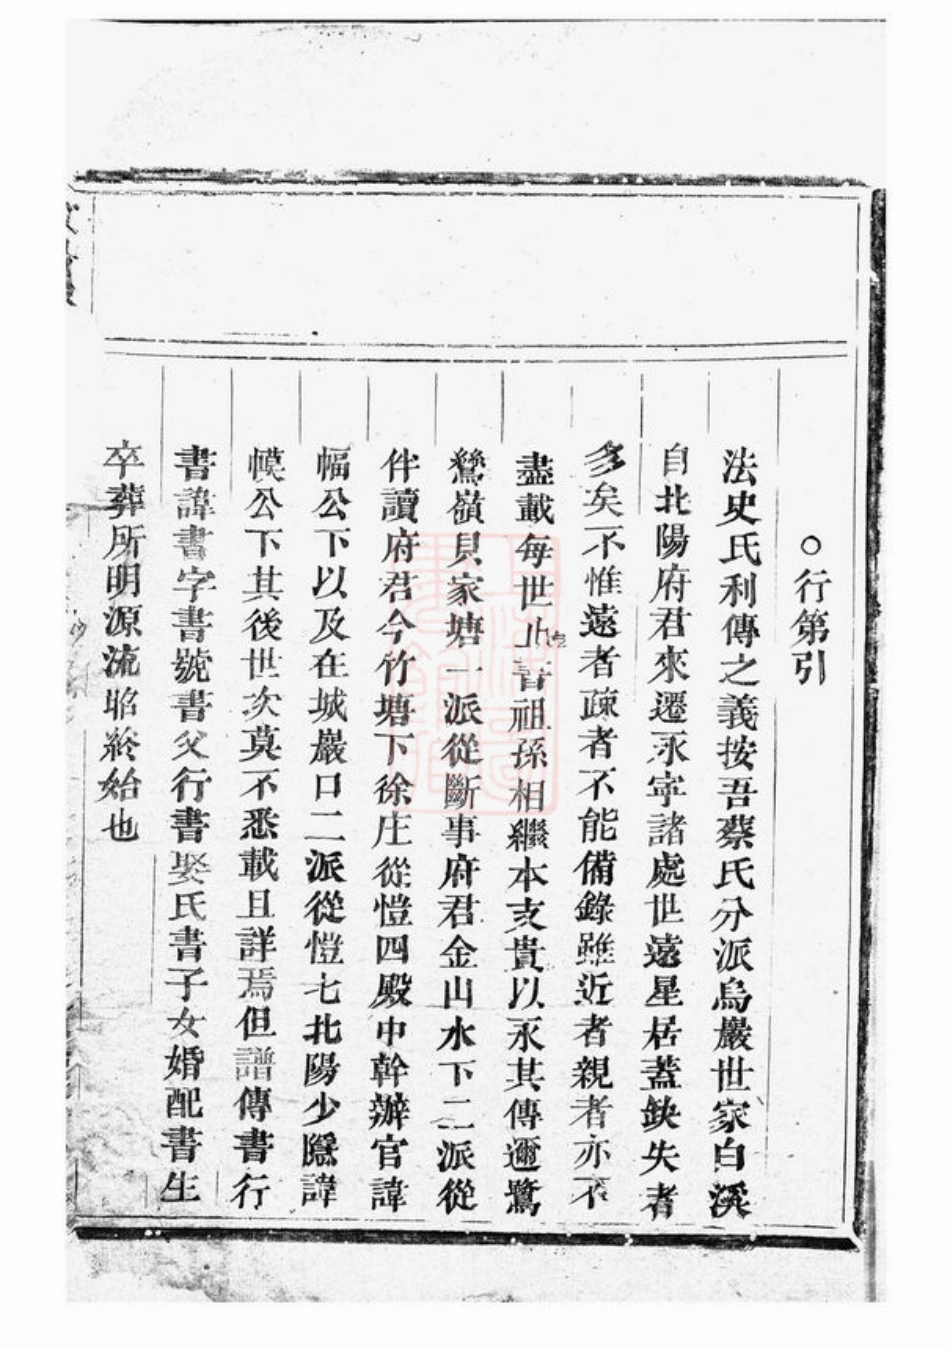 ○行第引
法史氏利傳之義按吾蔡氏分派烏巖世家白溪
自北陽府君來遷永寧諸處世遠星居蓋缺失者
多矣不惟遠者疎者不能備錄雖近者親者亦不
盡載每世止書祖孫相繼本支貴以永其傳邇鷺
鷟嶺貝家塘一派從斷事府君金山水下二派從
伴讀府君今竹塘下徐庄從愷四殿中幹辦官諱
幅公下以及在城巖口二派從愷七北陽少隱諱
幞公下其後世次莫不悉載且詳焉但譜傳書行
書諱書字書號書父行書娶氏書子女婚配書生
卒葬所明源流昭終始也